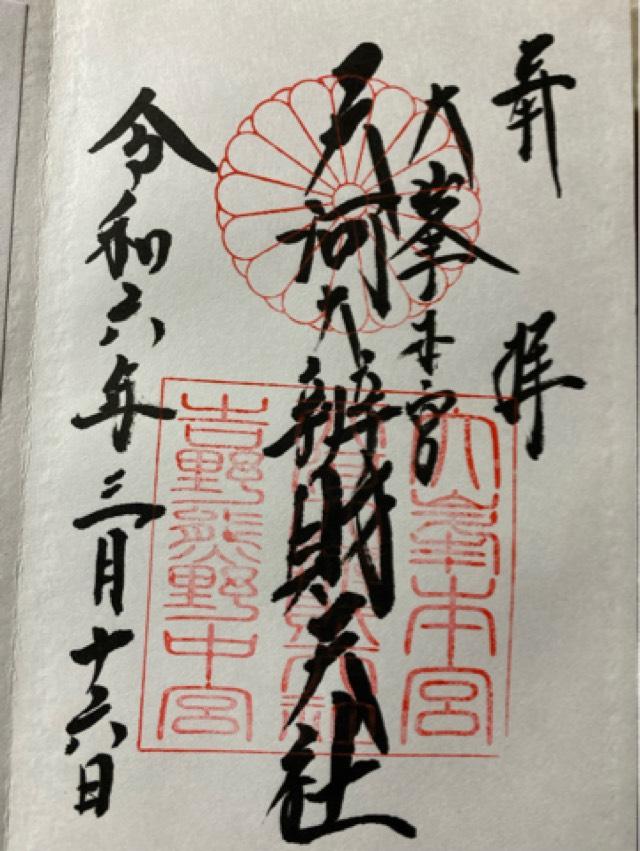 奉拝
大峯本宮
天河大辨財天社
令和六年三月十六日
大峯本宮
吉野熊野中宮